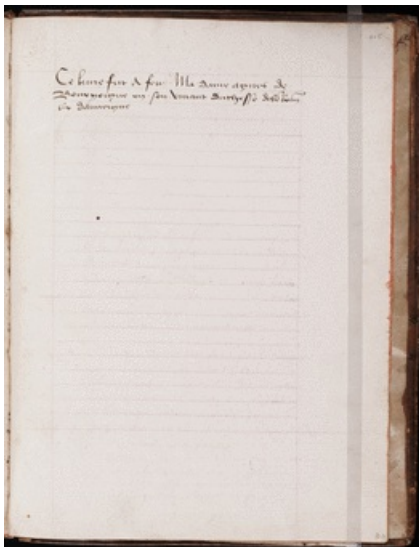 Ce livre fut a feu Ma dame agnes de
Bourgoigne en son vivant duchesse de
et dauvergne